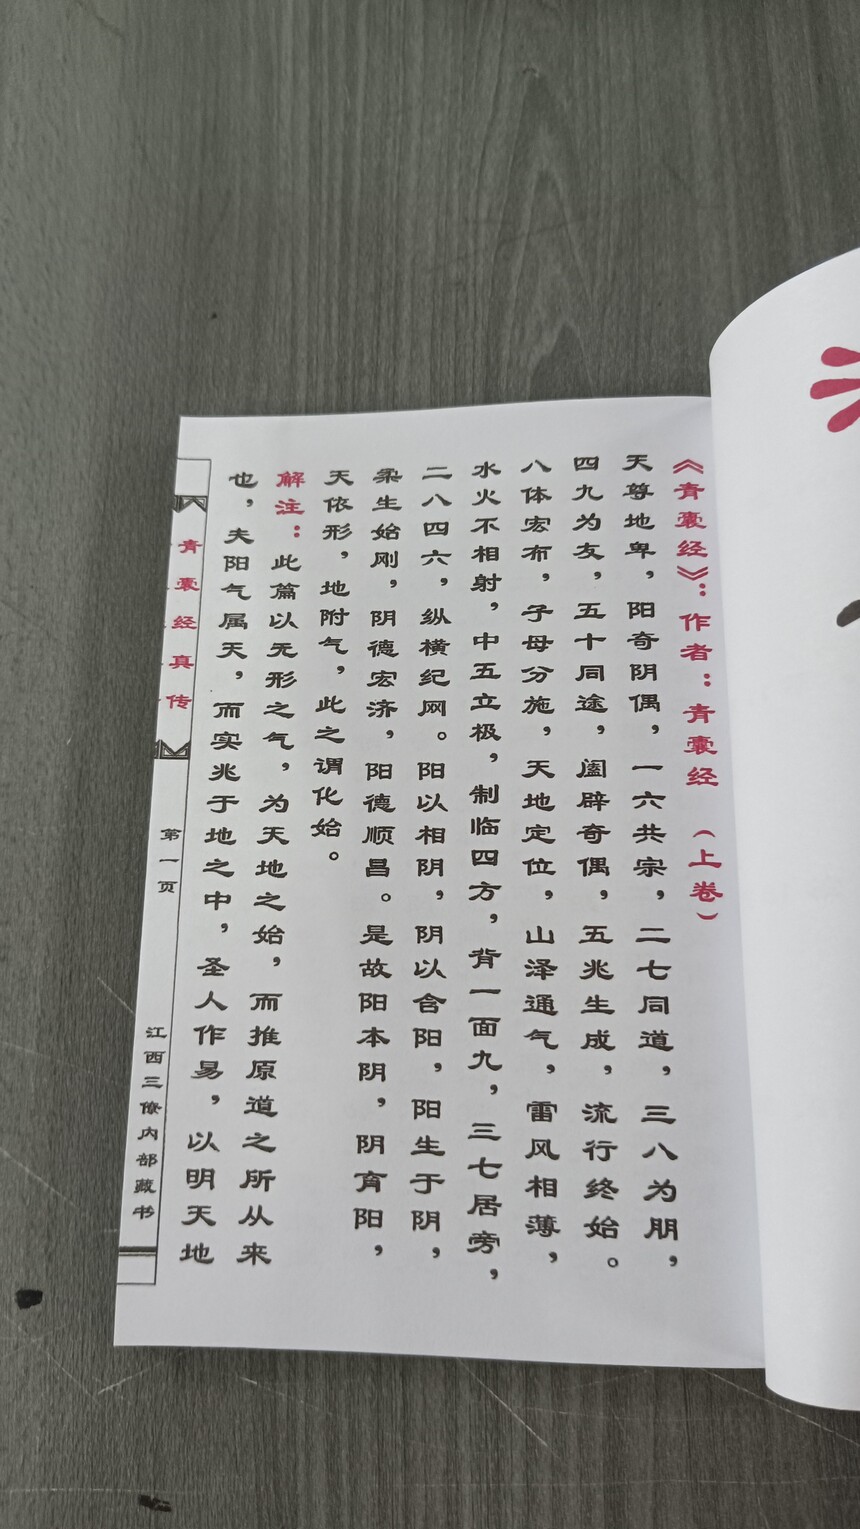 《青囊经》：作者：青囊经 （上卷）
天尊地卑，阳奇阴偶，一六共宗，二七同道，三八为朋，
四九为友，五十同途，阖辟奇偶，五兆生成，流行终始。
八体宏布，子母分施，天地定位，山泽通气，雷风相薄，
水火不相射，中五立极，制临四方，背一面九，三七居旁，
二八四六，纵横纪网。阳以相阴，阴以含阳，阳生于阴，
柔生始刚，阴德宏济，阳德顺昌。是故阳本阴，阴育阳，
天依形，地附气，此之谓化始。
解注：此篇以无形之气，为天地之始，而推原道之所从来
也，夫阳气属天，而实兆于地之中，圣人作易，以明天地
青囊经真传
第一页
江西三僚内部藏书